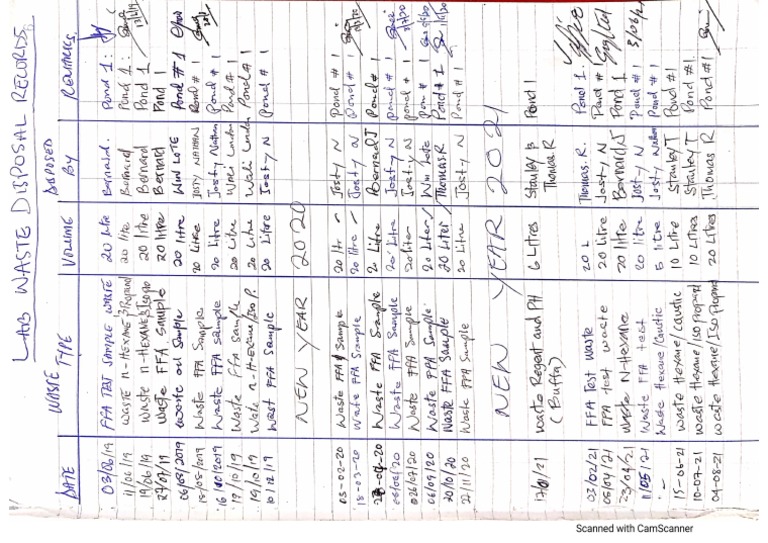 LAB WASTE DISPOSAL RECORDS
DATE WASTE TYPE VOLUME DISPOSED BY REMARKS
03/06/19 FFA TEST SAMPLE WASTE 20 Litr Bernard. Pond 1:
11/06/19 Waste n-HEXANE & Propanol 20 litre Bernard Pond 1:
19/06/19 Waste n-HEXANE 20 litre Bernard Pond 1
27/07/19 Waste FFA Sample 20 litre Bernard Pond 1
06/08/2019 Waste oil Sample 20 litre Win LOTE Pond # 1
15/08/2019 Waste FFA Sample 20 Litre JOSTY NATHAN Pond # 1
16/10/2019 Waste FFA Sample 20 Litre Jost-y Nathan Pond # 1
19/10/19 Waste FFA Sample 20 Litre Wali London Pond # 1
10/19 20 Litre Wali London Pond # 1
10/12/19 Wast FFA Sample 20 Litre Jost-y N Pond # 1
NEW YEAR 2020
03-02-20 Waste FFA Sample 20 ltr Jost-y N Pond # 1
18-03-20 Waste FFA Sample 20 litre Jost-y N Pond # 1
-20 Waste FFA Sample 20 Litre Bernard J Pond # 1
/20 Waste FFA Sample 20 Litre Jost-y N Pond # 1
/20 Waste FFA Sample 20 liter Jost-y N Pond # 1
06/09/20 Waste FFA Sample 20 Liter Win Lote Pon # 1
20/10/20 Waste FFA Sample 20 Liter Thomas.R Pond # 1
22/11/20 Waste FFA Sample 20 Litre Jost-y N Pond # 1
NEW YEAR 2021
/21 Waste Regent and PH 6 Litres Stanley & Pond 1
(Buffa) Thomas R
03/02/21 FFA Test waste 20 L Thomas. R. Pond 1
/21 FFA test waste 20 Litre Jost-y N Pond # 1
Waste N-Hexane 20 litre Bernard J Pond 1
11/05/21 Waste FFA test 20 litre Jost-y N Pond # 1
Waste Hexane/Caustic 5 litre Jost-y Nathan Pond # 1
15-06-21 waste Hexane/Caustic 10 Litre Stanley T Pond #1
10-07-21 waste Hexane/Iso Propanol 10 Litres Stanley T Pond #1
04-08-21 waste Hexane/Iso Propanol 20 Litres Thomas R Pond #1
Scanned with CamScanner